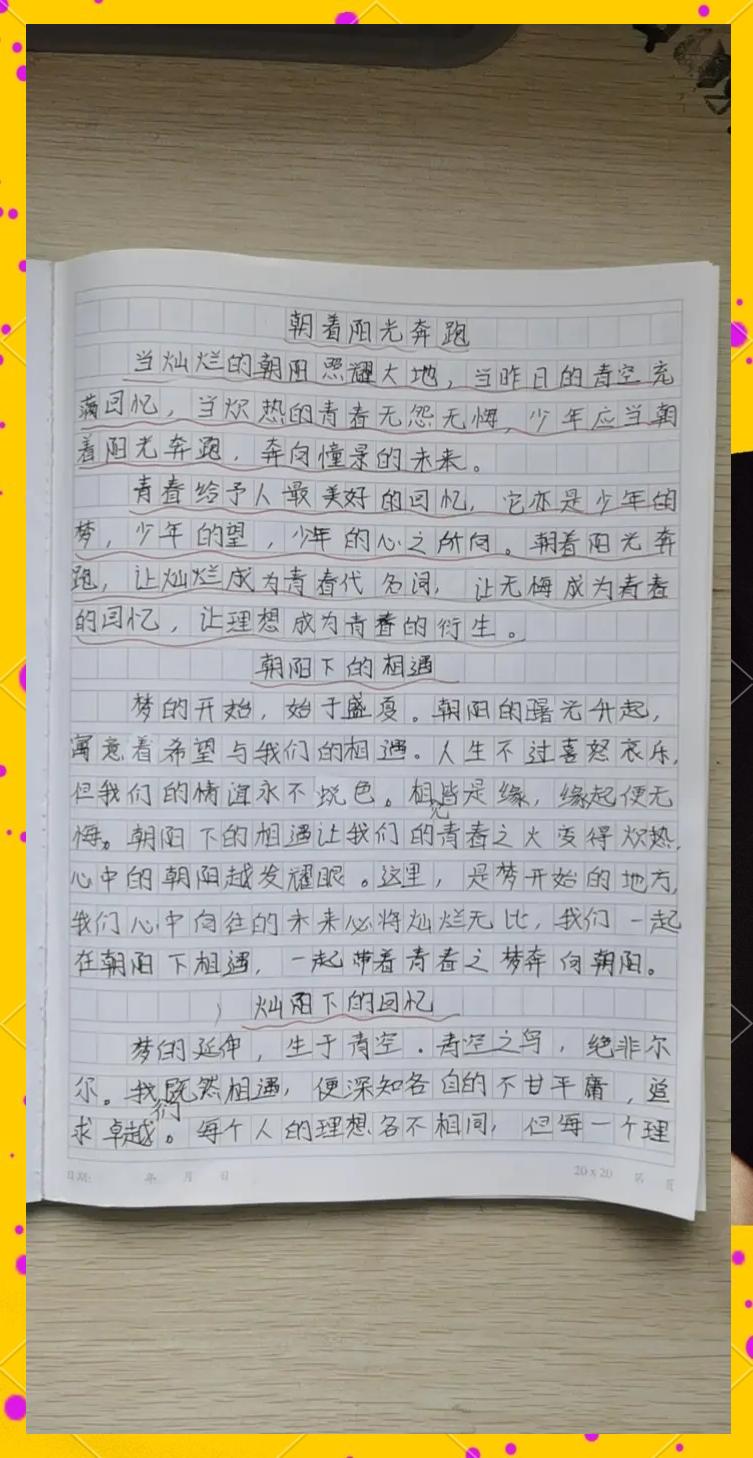 朝着阳光奔跑
当灿烂的朝阳照耀大地，当昨日的青空充
满回忆，当炽热的青春无怨无悔，少年应当朝
着阳光奔跑，奔向憧景的未来。
青春给予人最美好的回忆，它亦是少年的
梦，少年的望，少年的心之所向。朝着阳光奔
跑，让灿烂成为青春代名词，让无悔成为青春
的回忆，让理想成为青春的衍生。
朝阳下的相遇
梦的开始，始于盛夏。朝阳的曙光升起，
寓意着希望与我们的相遇。人生不过喜怒哀乐，
但我们的情谊永不蜕色。相见皆是缘，缘起便无
悔。朝阳下的相遇让我们的青春之火变得炽热，
心中的朝阳越发耀眼。这里，是梦开始的地方，
我们心中向往的未来必将灿烂无比，我们一起
在朝阳下相遇，一起带着青春之梦奔向朝阳。
灿阳下的回忆
梦的延伸，生于青空。青空之鸟，绝非尔
尔。我们既然相遇，便深知各自的不甘平庸，追
求卓越。每个人的理想各不相同，但每一个理
日期： 年 月 日 20×20 第 页